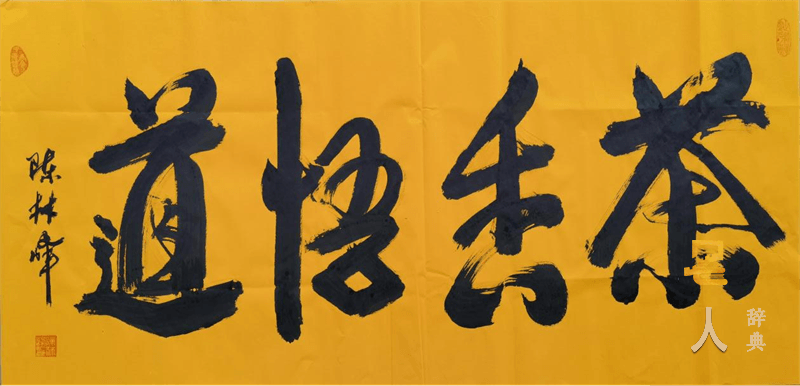 茶香悟道
陈林峰
名人
辞典